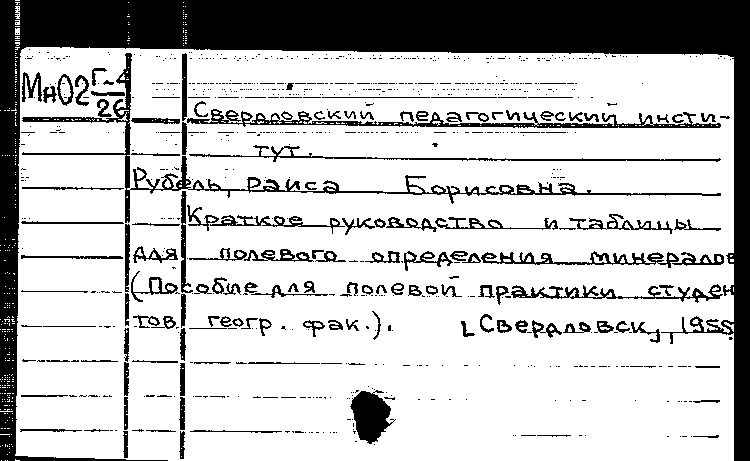 МнО2 Г-4
26
Свердловский педагогический инсти-
тут.
Рубель, Раиса Борисовна.
Краткое руководство и таблицы
для полевого определения минералов
(Пособие для полевой практики студен
тов геогр. фак.). [Свердловск], 1955